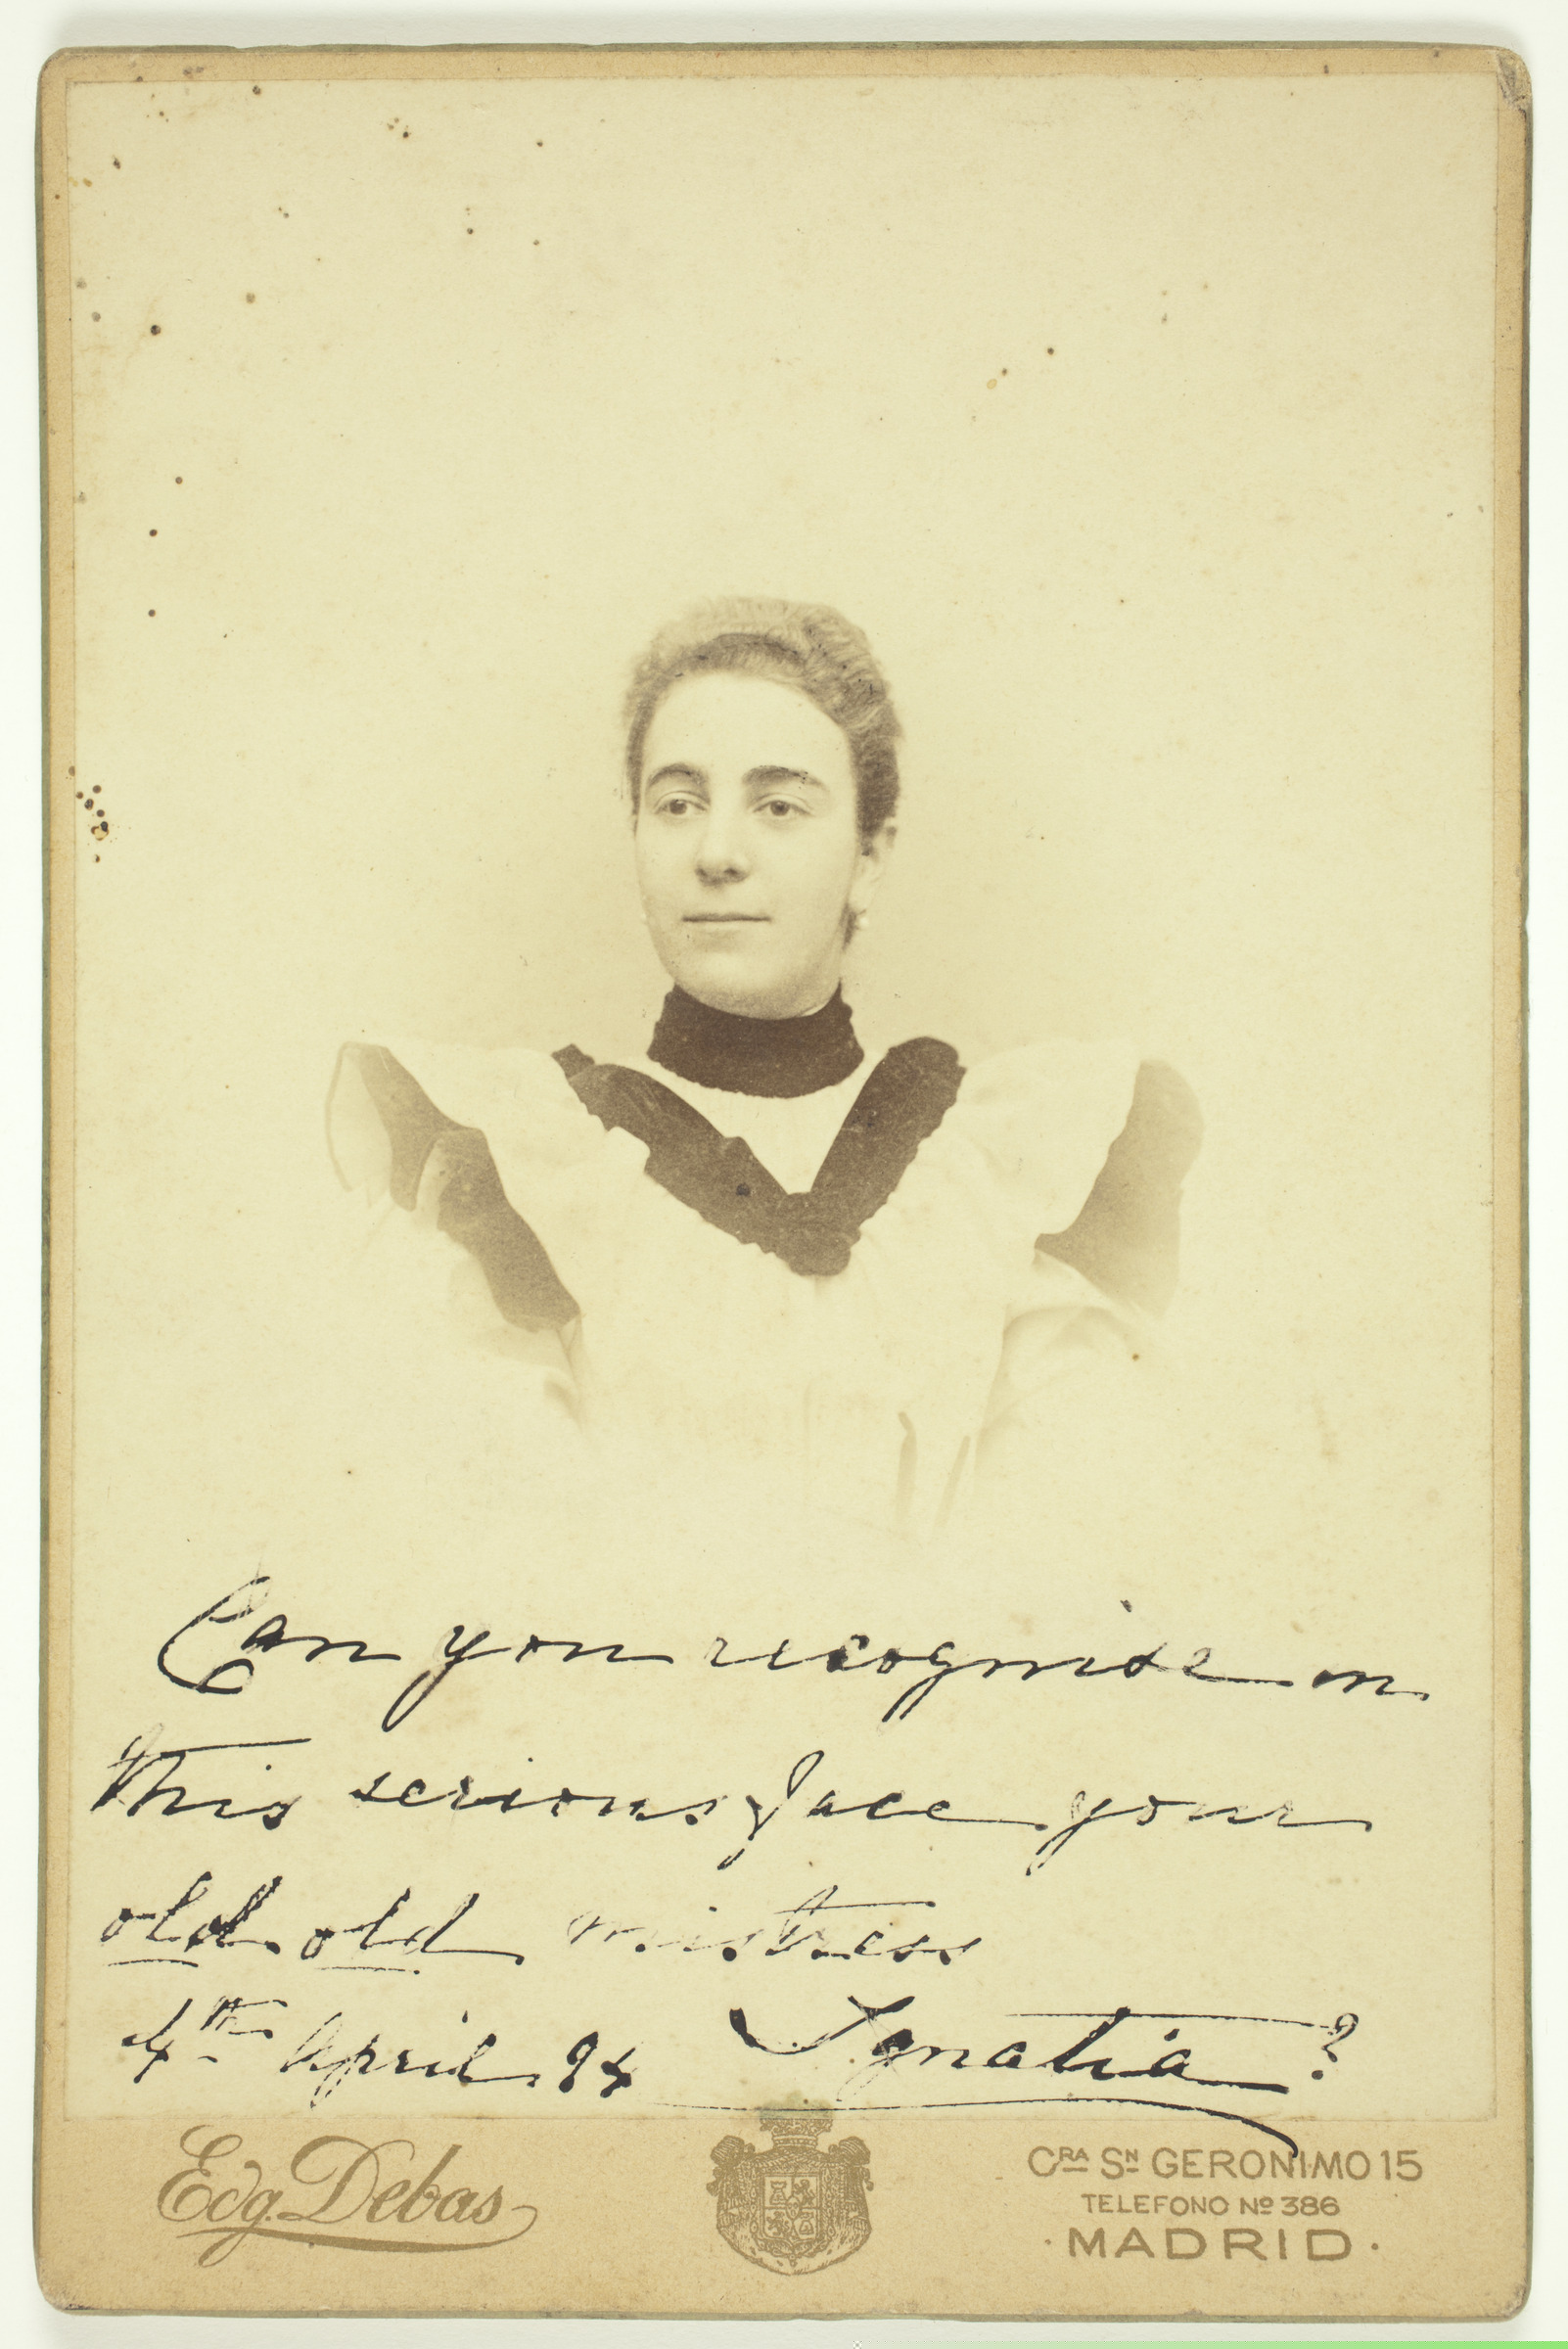 Can you recognise in
this serious face your
old old mistress
4th April 94 Ignatia?
Edg. Debas
CRA SN GERONIMO 15
TELEFONO No 386
· MADRID ·